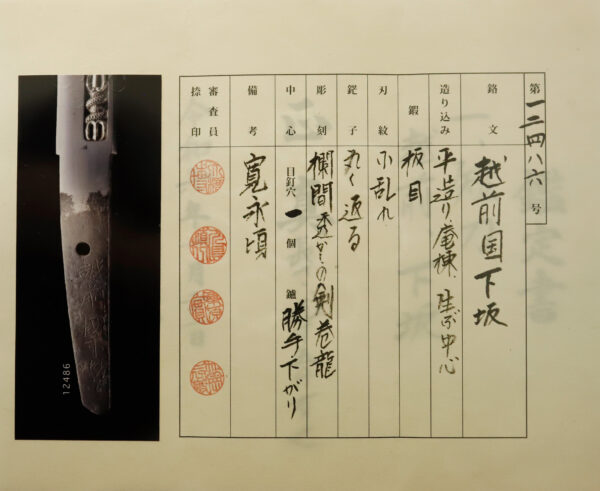 第一二四八六号
銘文 越前国下坂
造り込み 平造り、庵棟、生ぶ中心
鍛 板目
刃紋 小乱れ
鋩子 丸く返る
彫刻 欄間透かしの剣巻龍
中心 目釘穴 一 個 鑢 勝手下がり
備考 寛永頃
審査員捺印
12486